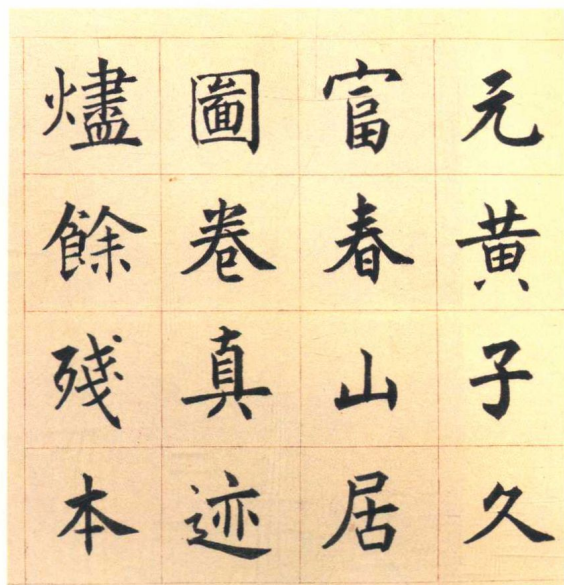 元黄子久
富春山居
圖卷真迹
燼餘殘本